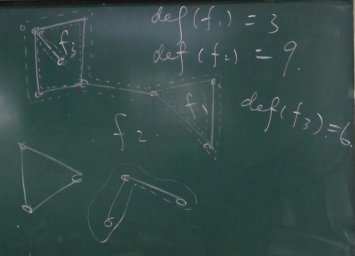 def(f₁) = 3
f₃
def(f₂) = 9.
f₁
def(f₃) = 6.
f₂